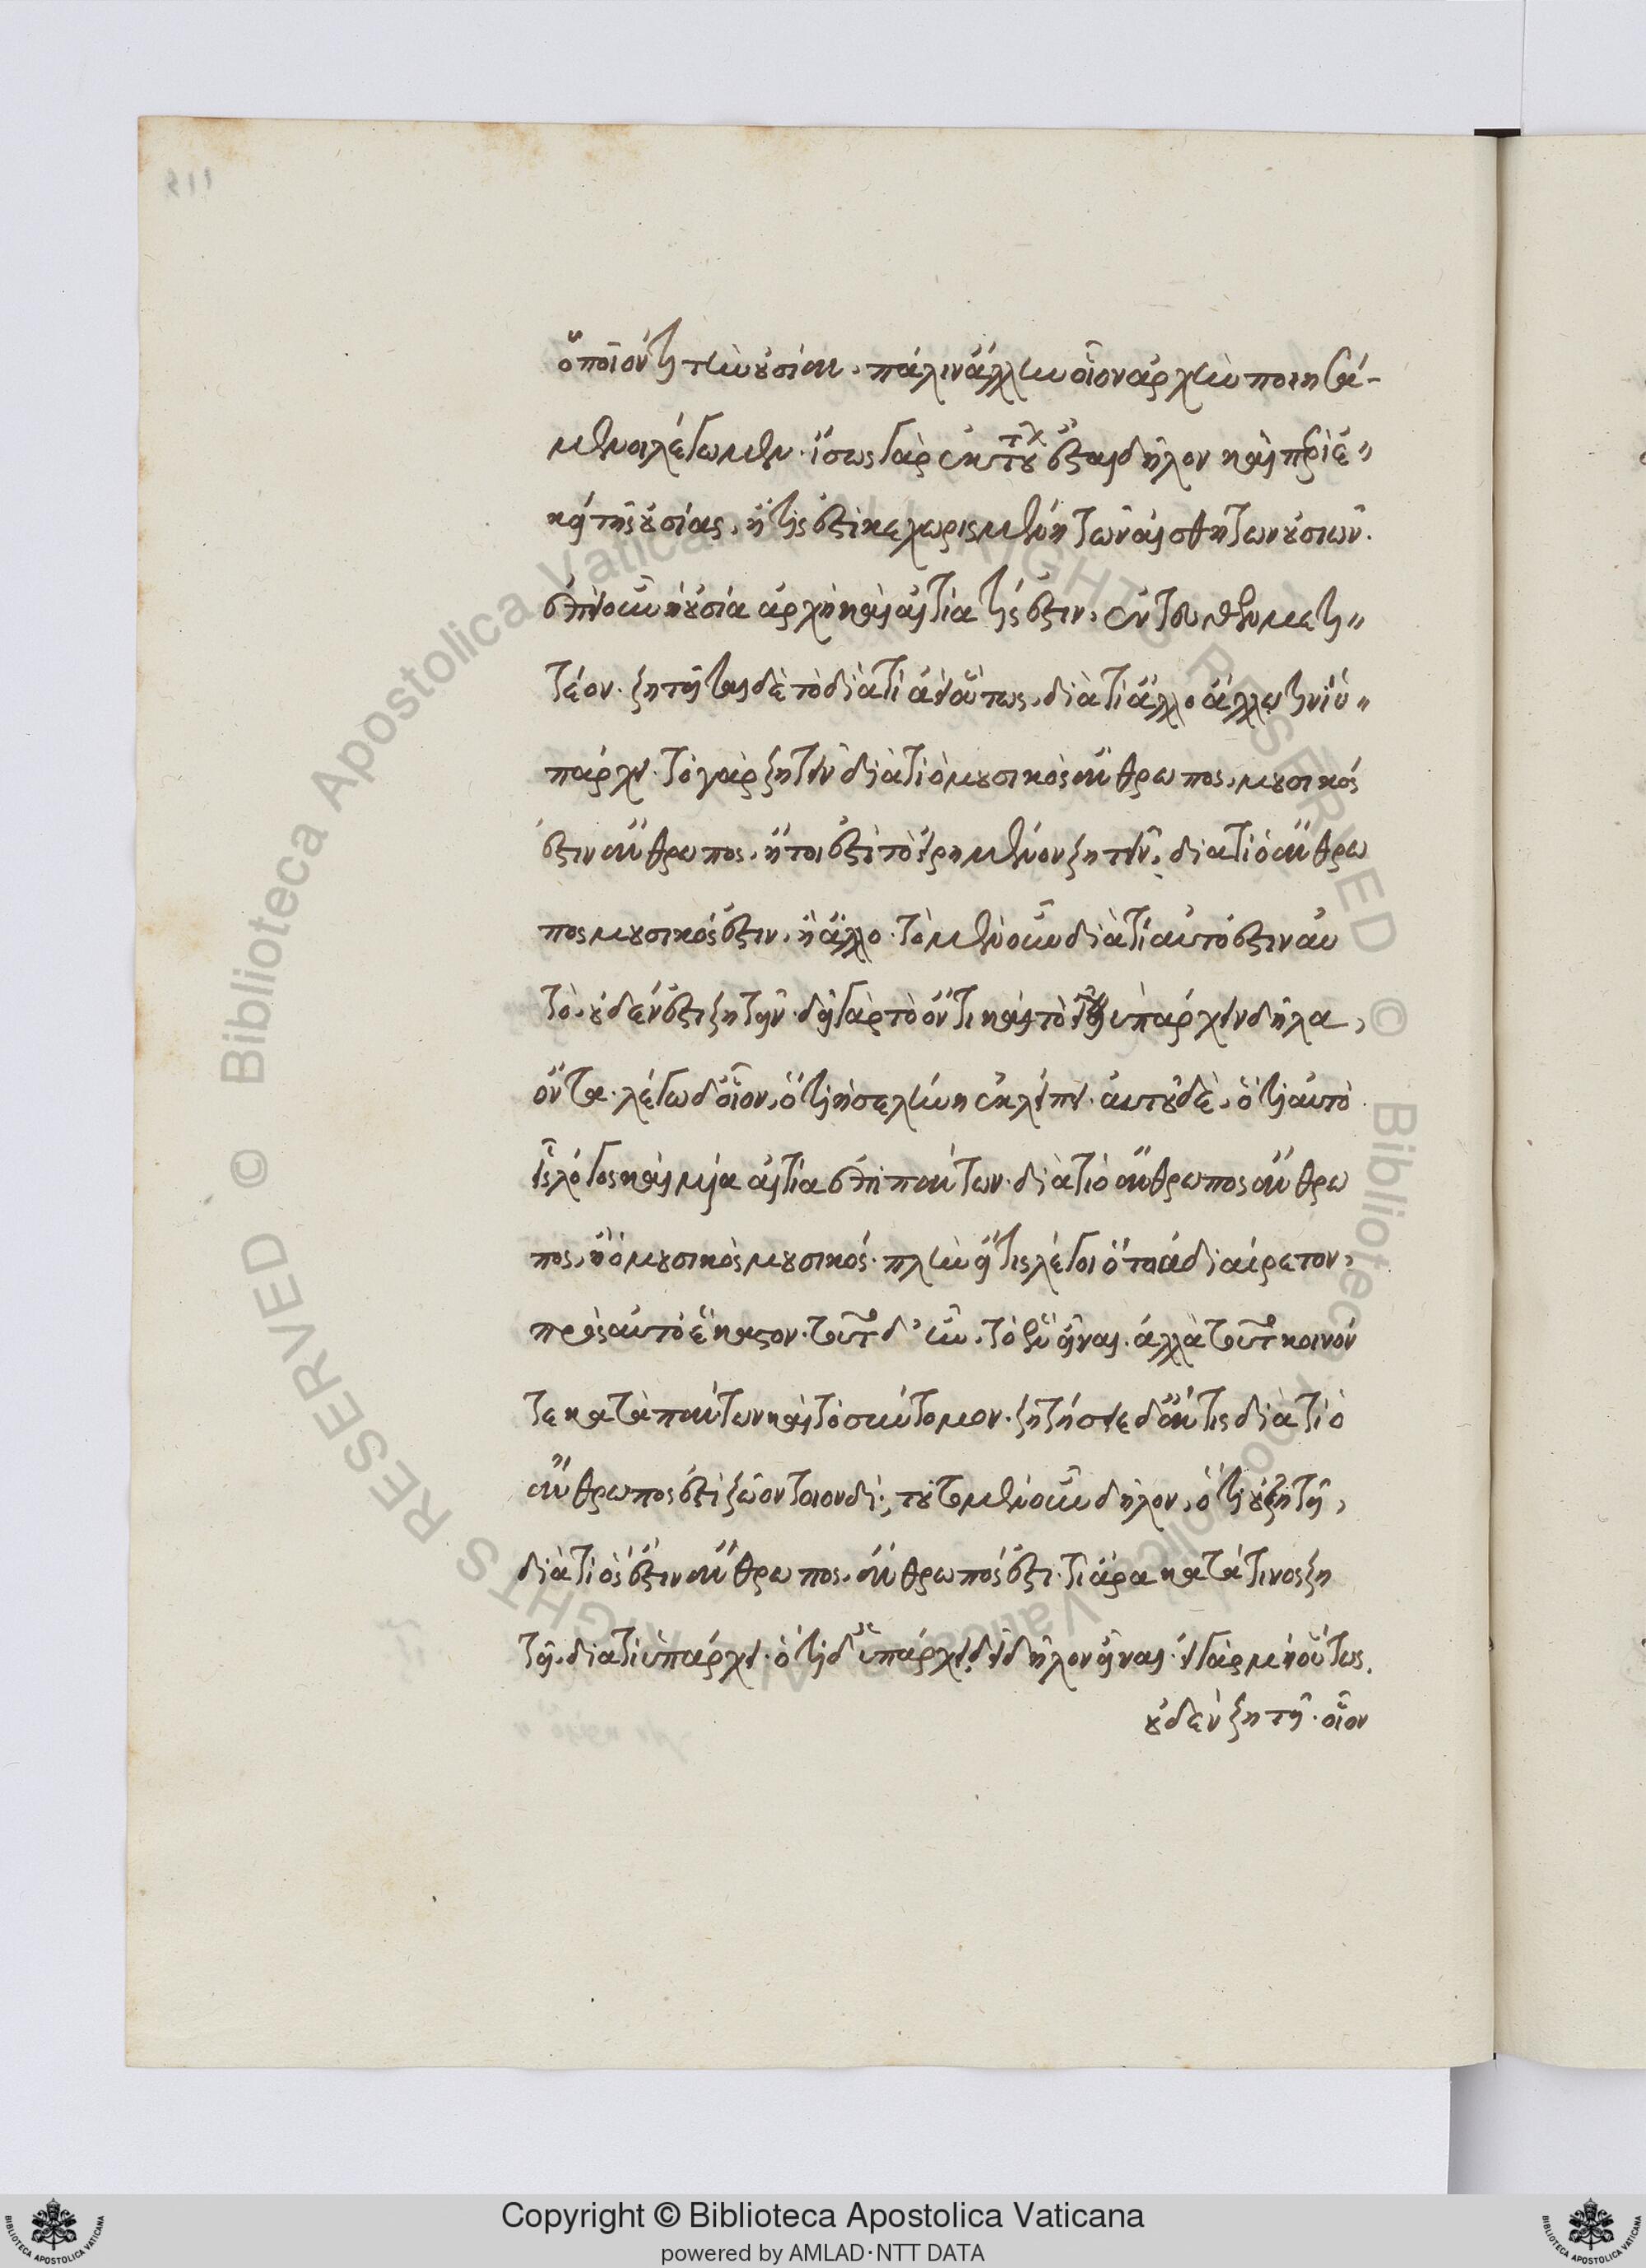 ὁποῖόν τι τὴν οὐσίαν. πάλιν ἄλλην οἷον ἀρχὴν ποιησά-
μενοι λέγωμεν. ἴσως γὰρ ἐκ τούτου ἔσται δῆλον καὶ περὶ ἐ〃
κείνης τῆς οὐσίας, ἥτις ἐστὶ κεχωρισμένη τῶν αἰσθητῶν οὐσιῶν.
ἐπεὶ οὖν ἡ οὐσία ἀρχὴ καὶ αἰτία τίς ἐστιν, ἐντεῦθεν μετι〃
τέον. ζητεῖται δὲ τὸ διατί ἀεὶ οὕτως, διὰ τί ἄλλο ἄλλῳ τινὶ ὑ〃
πάρχει. τὸ γὰρ ζητεῖν διὰ τί ὁ μουσικὸς ἄνθρωπος, μουσικός
ἐστιν ἄνθρωπος, ἤτοι ἐστὶ τὸ εἰρημένον ζητεῖν, διατί ὁ ἄνθρω
πος μουσικός ἐστιν, ἢ ἄλλο. τὸ μὲν οὖν διὰ τί αὐτό ἐστιν αὐ
τὸ, οὐδέν ἐστι ζητεῖν. δεῖ γὰρ τὸ ὅτι καὶ τὸ εἶναι ὑπάρχειν δῆλα,
ὄντα. λέγω δ' οἷον, ὅτι ἡ σελήνη ἐκλείπει. αὐτοῦ δὲ, ὅτι αὐτὸ
εἷς λόγος καὶ μία αἰτία ἐπὶ πάντων. διὰ τί ὁ ἄνθρωπος ἄνθρω
πος, ἢ ὁ μουσικὸς μουσικός. πλὴν εἴ τις λέγοι ὅτι ἀδιαίρετον,
πρὸς αὑτὸ ἕκαστον. τοῦτο δ' ἦν. τὸ ἑνὶ εἶναι. ἀλλὰ τοῦτο κοινόν
τε κατὰ πάντων καὶ τὸ σύντομον. ζητήσειε δ' ἄν τις διὰ τί ὁ
ἄνθρωπος ἐστὶ ζῶον τοιονδί; τοῦτο μὲν οὖν δῆλον, ὅτι οὐ ζητεῖ,
διὰ τί ὅς ἐστιν ἄνθρωπος, ἄνθρωπός ἐστι. τὶ ἄρα κατά τινος ζη
τεῖ. διατί ὑπάρχει. ὅτι δ' ὑπάρχει, δεῖ δῆλον εἶναι. εἰ γὰρ μὴ οὕτως,
οὐδὲν ζητεῖ. οἷον
Copyright © Biblioteca Apostolica Vaticana
powered by AMLAD·NTT DATA